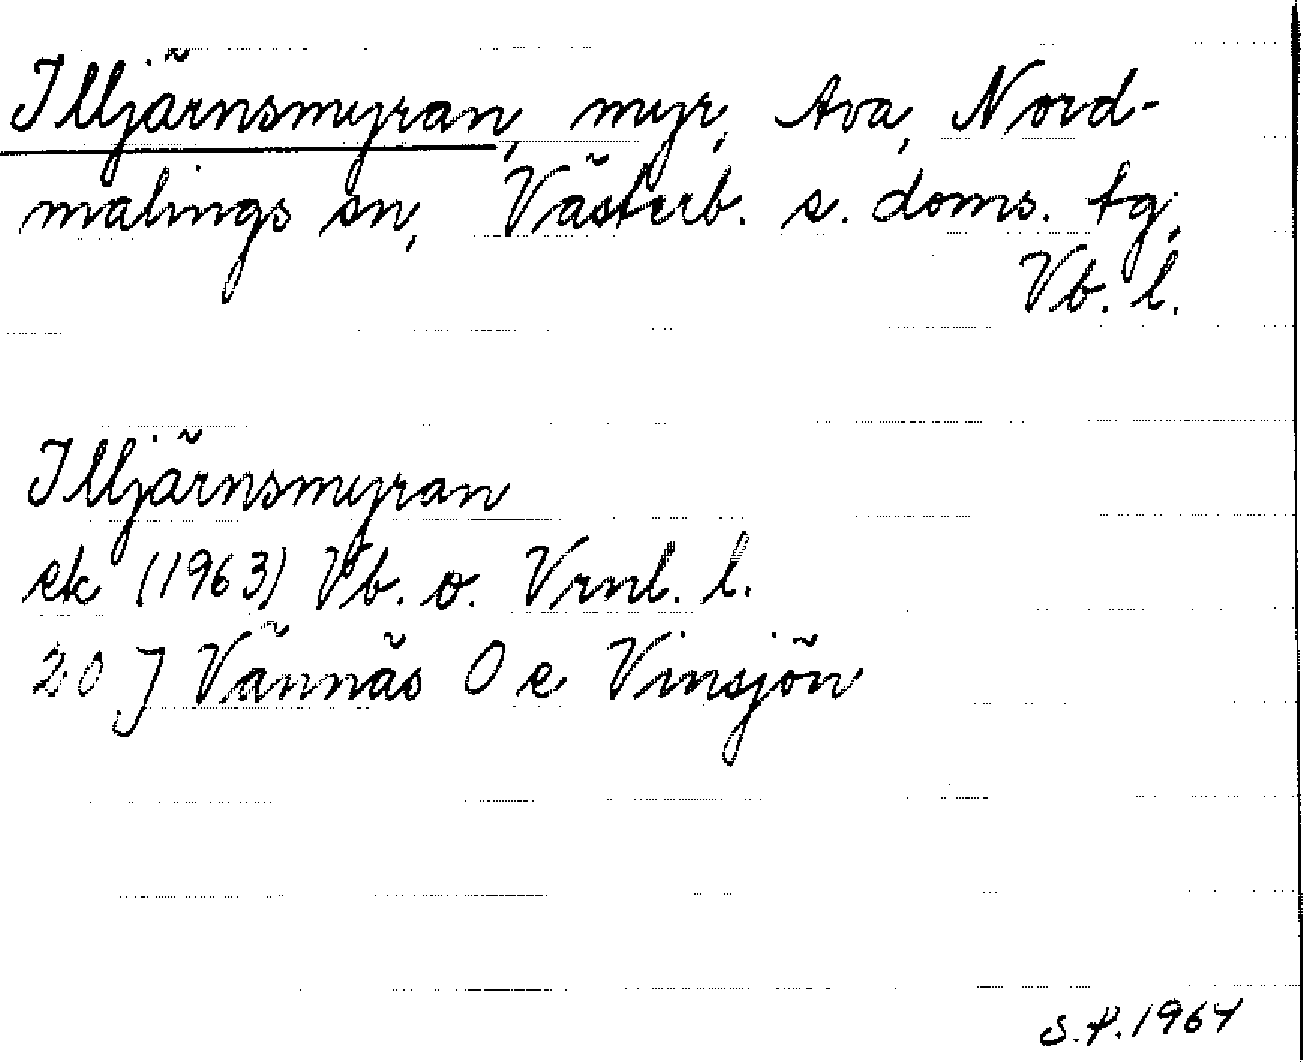 Illjärnsmyran, myr, Ava, Nord-
malings sn, Västerb. s. doms. tg,
Vb. l.
Illjärnsmyran
ek (1963) Vb. o. Vrnl. l.
20 J Vännäs 0 e Vinsjön
S.P. 1964